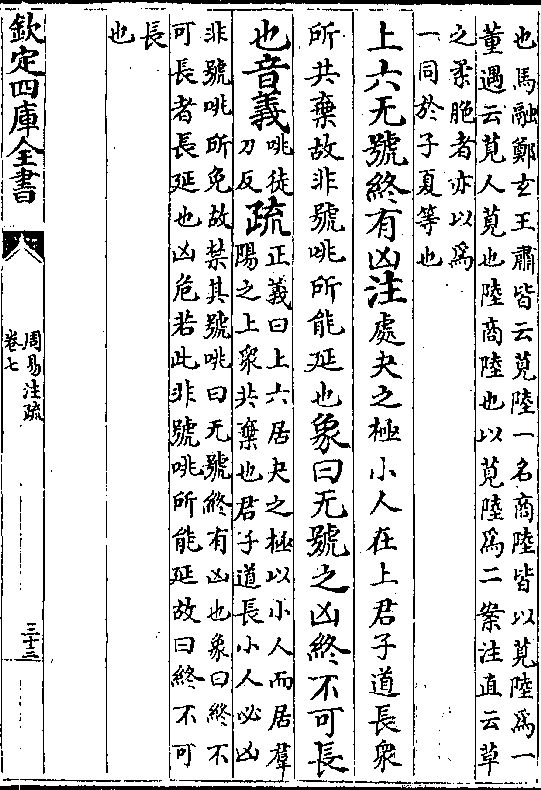 也馬融鄭玄王肅皆云莧陸一名商陸皆以莧陸爲一
董遇云莧人莧也陸商陸也以莧陸爲二案注直云草
之柔脃者亦以爲
一同於子夏等也
上六无號終有凶注處夬之極小人在上君子道長衆
所共棄故非號咷所能延也象曰无號之凶終不可長
也音義咷徒
刀反疏正義曰上六居夬之極以小人而居羣
陽之上衆共棄也君子道長小人必凶
非號咷所免故禁其號咷曰无號終有凶也象曰終不
可長者長延也凶危若此非號咷所能延故曰終不可
長
也
欽定四庫全書
周易注疏
卷七
三十三